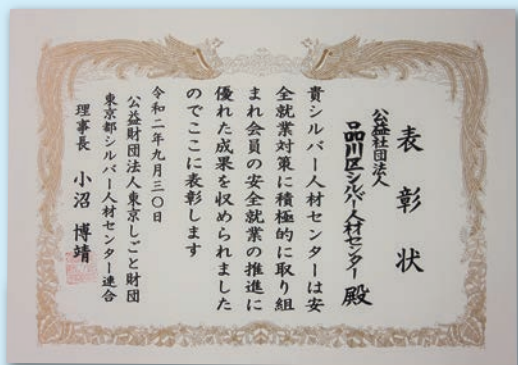 表彰状
公益社団法人
品川区シルバー人材センター殿
貴シルバー人材センターは安
全就業対策に積極的に取り組
まれ会員の安全就業の推進に
優れた成果を収められました
のでここに表彰します
令和二年九月三〇日
公益財団法人東京しごと財団
東京都シルバー人材センター連合
理事長 小沼博靖